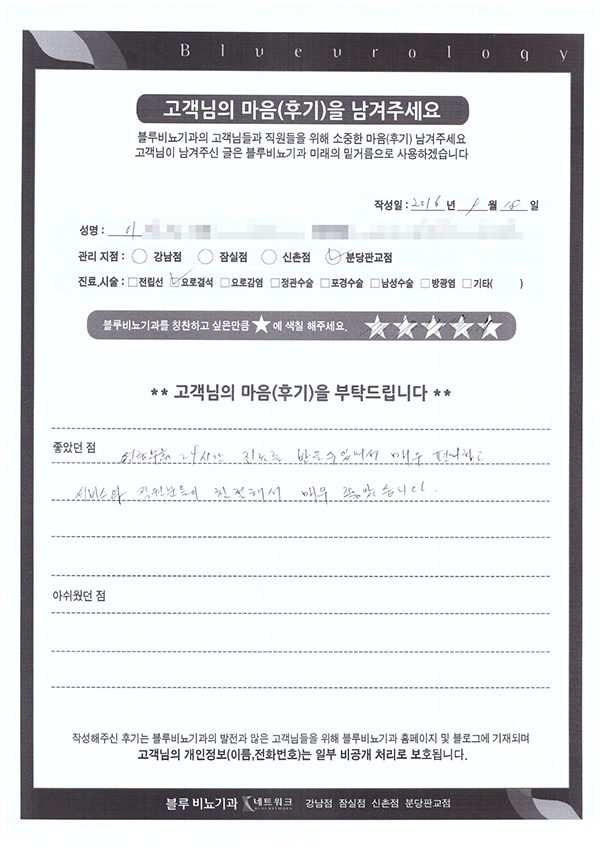 Blueurology
고객님의 마음(후기)을 남겨주세요
블루비뇨기과의 고객님들과 직원들을 위해 소중한 마음(후기) 남겨주세요
고객님이 남겨주신 글은 블루비뇨기과 미래의 밑거름으로 사용하겠습니다
작성일 : 2016 년 월 일
성명 : 이
관리 지점 : 강남점 잠실점 신촌점 분당판교점
진료.시술 : 전립선 요로결석 요로감염 정관수술 포경수술 남성수술 방광염 기타( )
블루비뇨기과를 칭찬하고 싶은만큼 ★에 색칠 해주세요. ★★★★★
** 고객님의 마음(후기)을 부탁드립니다 **
좋았던 점 연중무휴 24시간 진료를 받을수있어서 매우 편리하고
서비스와 직원분들이 친절해서 매우 좋았습니다.
아쉬웠던 점
작성해주신 후기는 블루비뇨기과의 발전과 많은 고객님들을 위해 블루비뇨기과 홈페이지 및 블로그에 기재되며
고객님의 개인정보(이름,전화번호)는 일부 비공개 처리로 보호됩니다.
블루 비뇨기과 네트워크 BLUE NETWORK 강남점 잠실점 신촌점 분당판교점